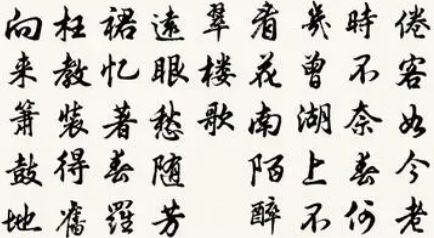 倦客如今老
時不奈春何
幾曾湖上不
看花南陌醉
翠楼歌
遠眼愁随芳
裙忆著春羅
枉教裝得舊
向来簫鼓地